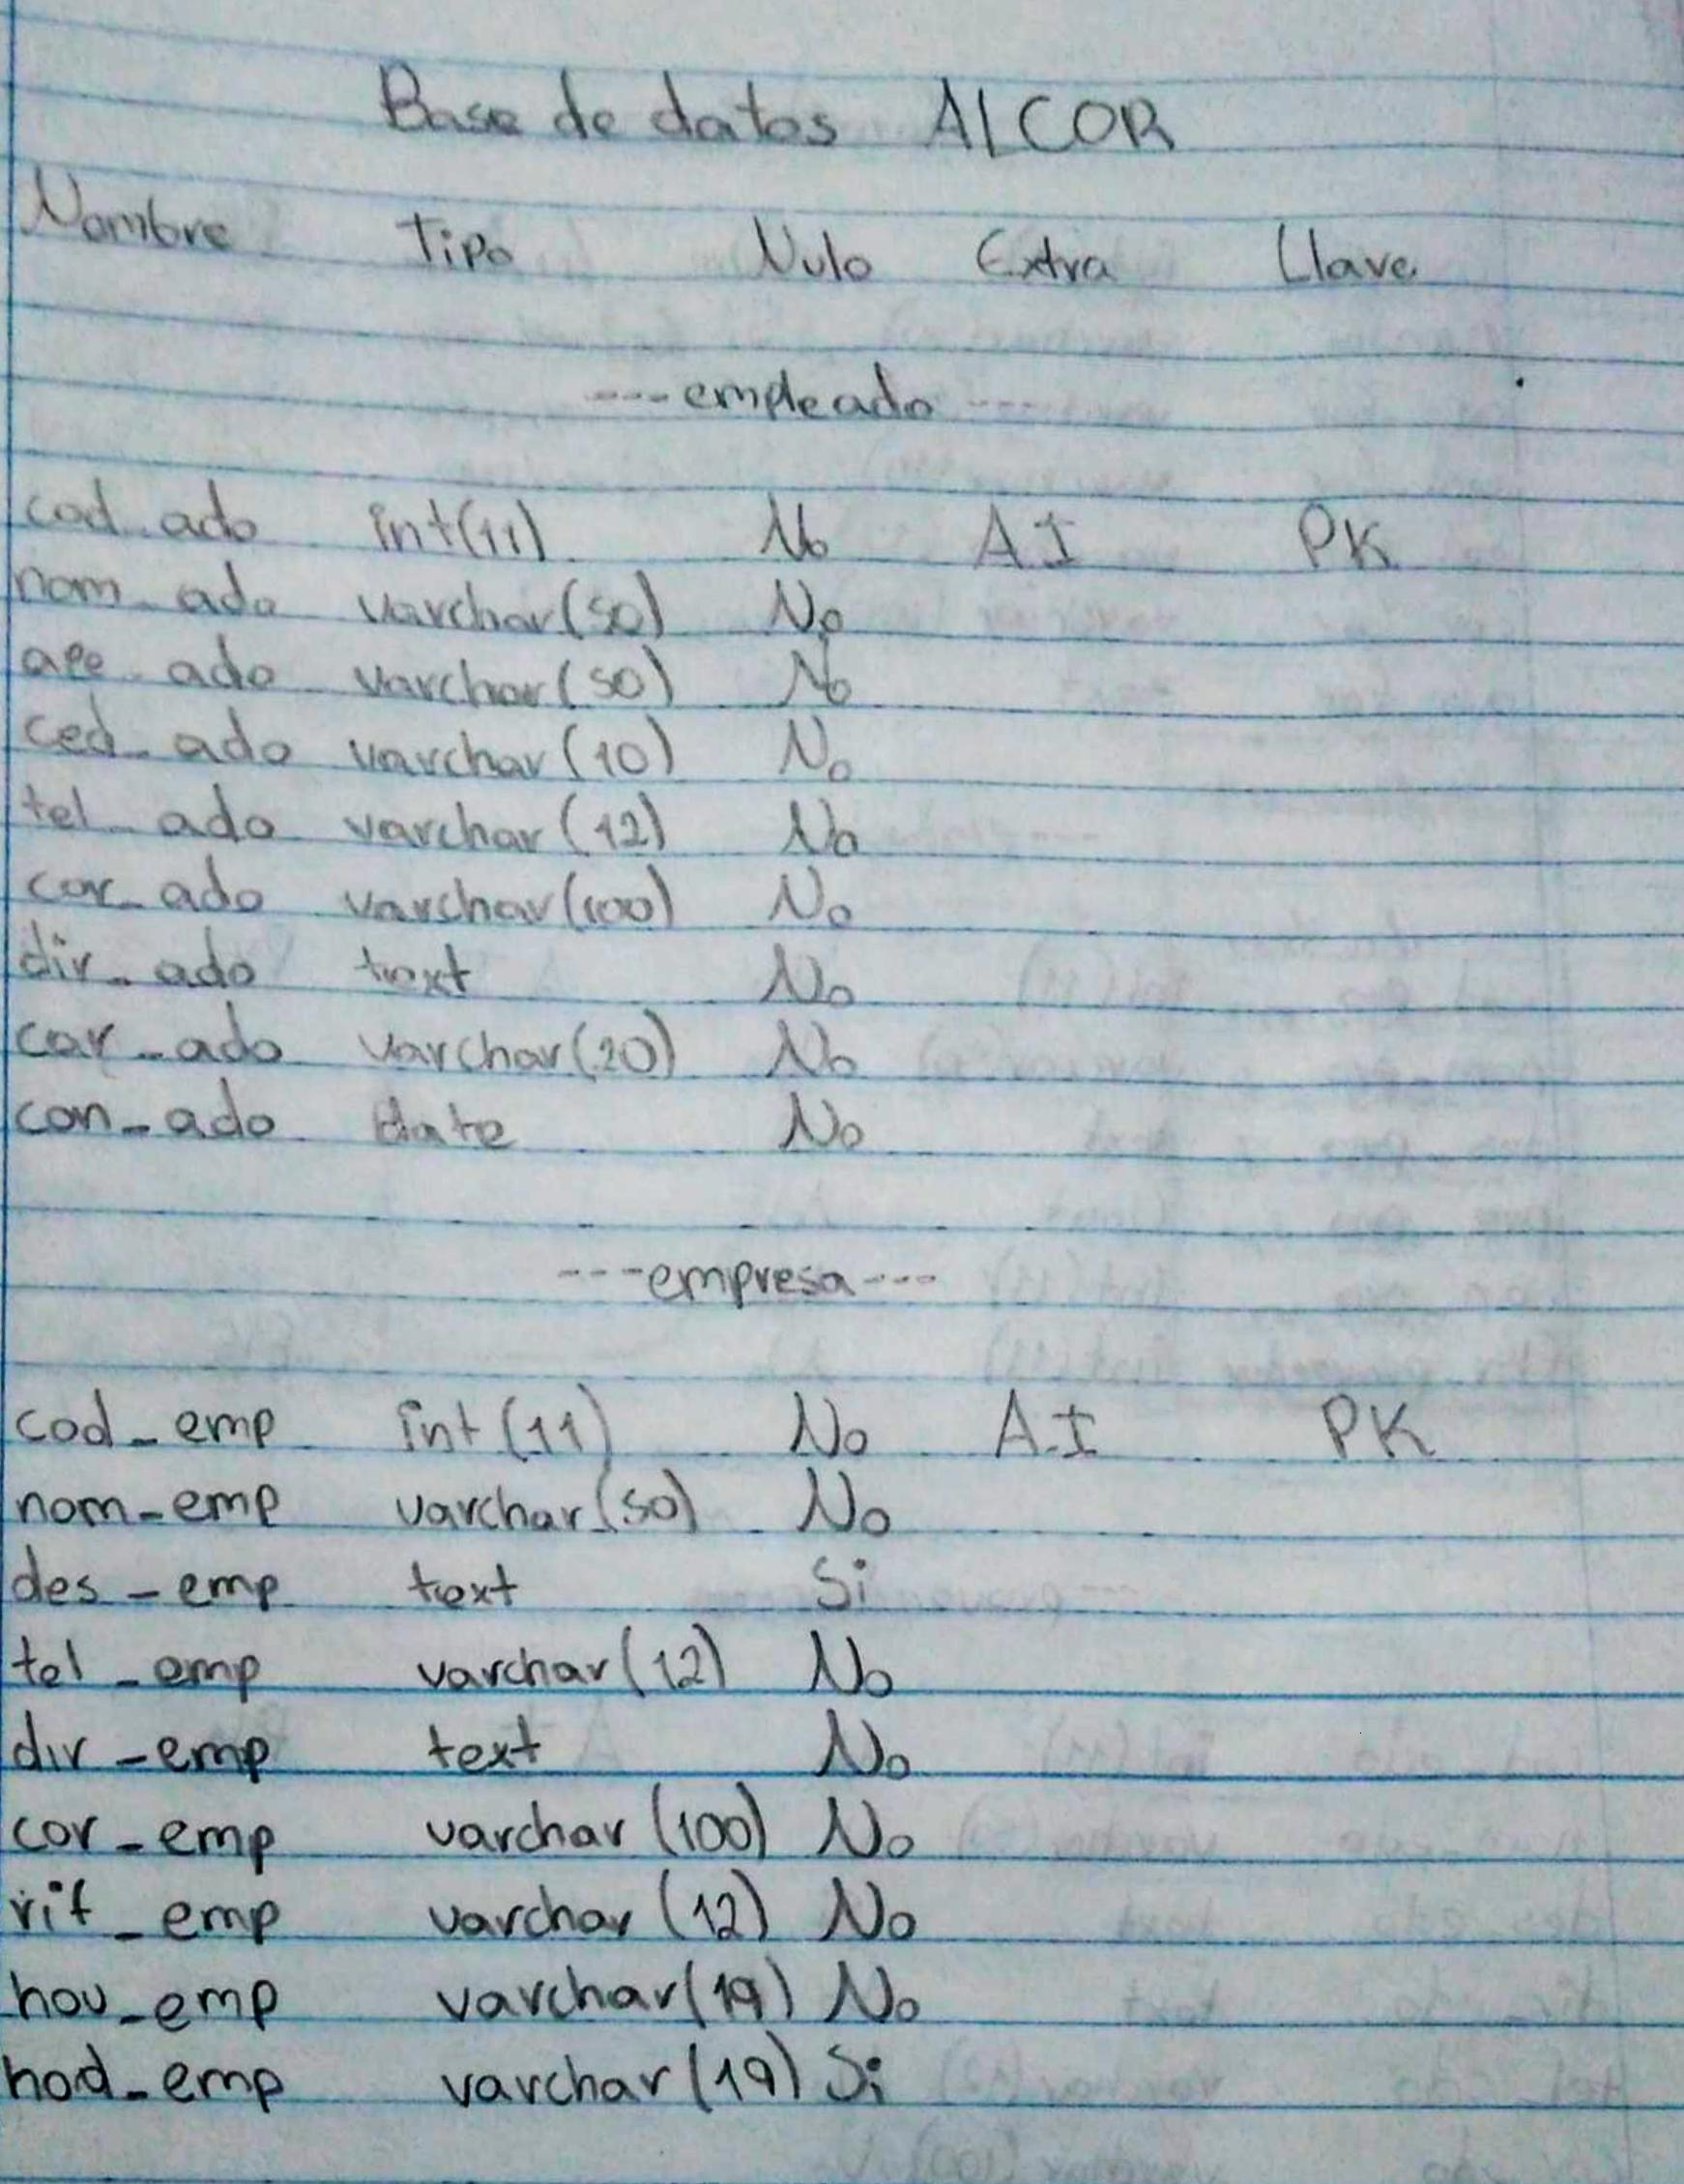 Base de datos ALCOR
Nombre Tipo Nulo Extra Llave
---empleado---
cod_ado int(11) No AI PK
nom_ado varchar(50) No
ape_ado varchar(50) No
ced_ado varchar(10) No
tel_ado varchar(12) No
cor_ado varchar(100) No
dir_ado text No
car_ado varchar(20) No
con_ado date No
---empresa---
cod_emp int(11) No AI PK
nom_emp varchar(50) No
des_emp text Si
tel_emp varchar(12) No
dir_emp text No
cor_emp varchar(100) No
rif_emp varchar(12) No
hou_emp varchar(19) No
hod_emp varchar(19) Si